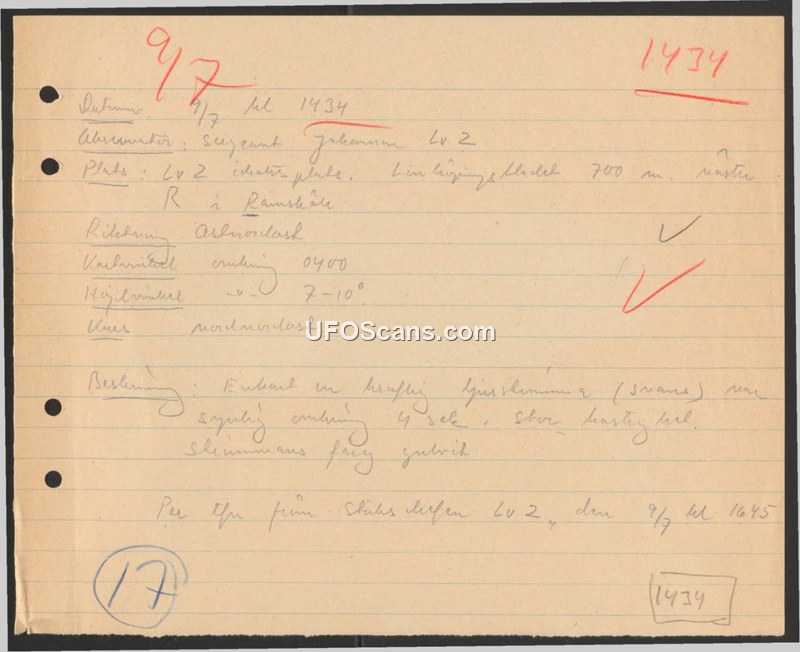 9/7 1434
Datum 9/7 kl 1434
Observatör: Sergeant Johansson Lv 2
Plats: Lv 2 plats. Linköpingsbladet 700 m. väster
R i Ramshäll
Riktning Ostnordost
Kartvinkel omkring 0400
Höjdvinkel -"- 7-10°
Kurs nordnordost
UFOScans.com
Beskrivning: Endast en kraftig ljusstrimma (svans) var
synlig omkring 4 sek. Stor hastighet.
Strimmans färg gulvit
Per tfn från Stabschefen Lv 2, den 9/7 kl 1645
17
1434